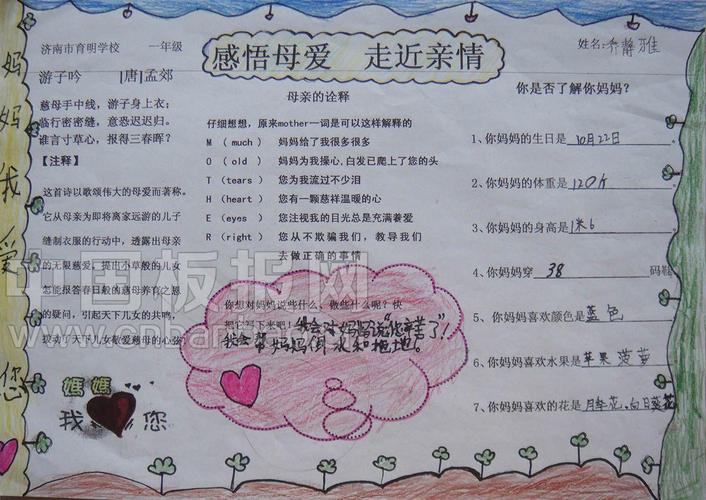 妈妈我爱您
济南市育明学校 一年级
感悟母爱 走近亲情
姓名:乔静雅
游子吟 [唐]孟郊
慈母手中线，游子身上衣；
临行密密缝，意恐迟迟归。
谁言寸草心，报得三春晖？
【注释】
这首诗以歌颂伟大的母爱而著称。
它从母亲为即将离家远游的儿子
缝制衣服的行动中，透露出母亲
的无限慈爱，提出小草般的儿女
怎能报答春日般的慈母养育之恩
的疑问，引起天下儿女的共鸣，
拨动了天下儿女敬爱慈母的心弦
媽媽
我 您
母亲的诠释
仔细想想，原来mother一词是可以这样解释的
M （ much ） 妈妈给了我很多很多
O （ old ） 妈妈为我操心,白发已爬上了您的头
T （tears ） 您为我流过不少泪
H （heart ） 您有一颗慈祥温暖的心
E （eyes ） 您注视我的目光总是充满着爱
R （right ） 您从不欺骗我们，教导我们
去做正确的事情
你想对妈妈说些什么、做些什么呢？快
把它写下来吧！我会对妈妈说“您辛苦了”！
我会帮妈妈倒水和拖地。
你是否了解你妈妈？
1、你妈妈的生日是 10月22日
2、你妈妈的体重是 120斤
3、你妈妈的身高是 1米6
4、你妈妈穿 38 码鞋
5、你妈妈喜欢颜色是 蓝色
6、你妈妈喜欢水果是 苹果 菠萝
7、你妈妈喜欢的花是 月季花、向日葵花
中国板报网